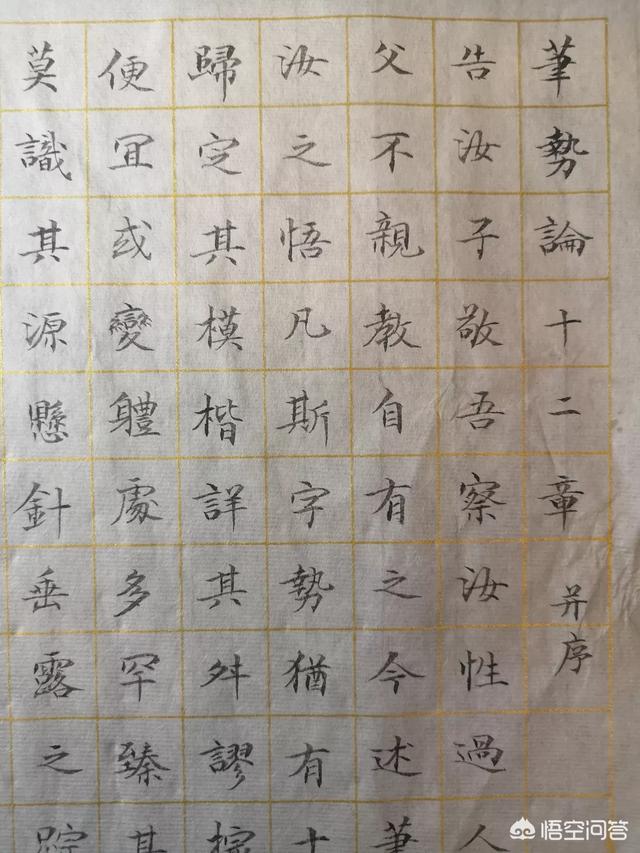 筆勢論十二章并序
告汝子敬吾察汝性過人
父不親教自有之今述筆
汝之悟凡斯字勢猶有十
歸定其模楷詳其舛謬
便冝或變體處多罕臻其
莫識其源懸針垂露之
悟空问答